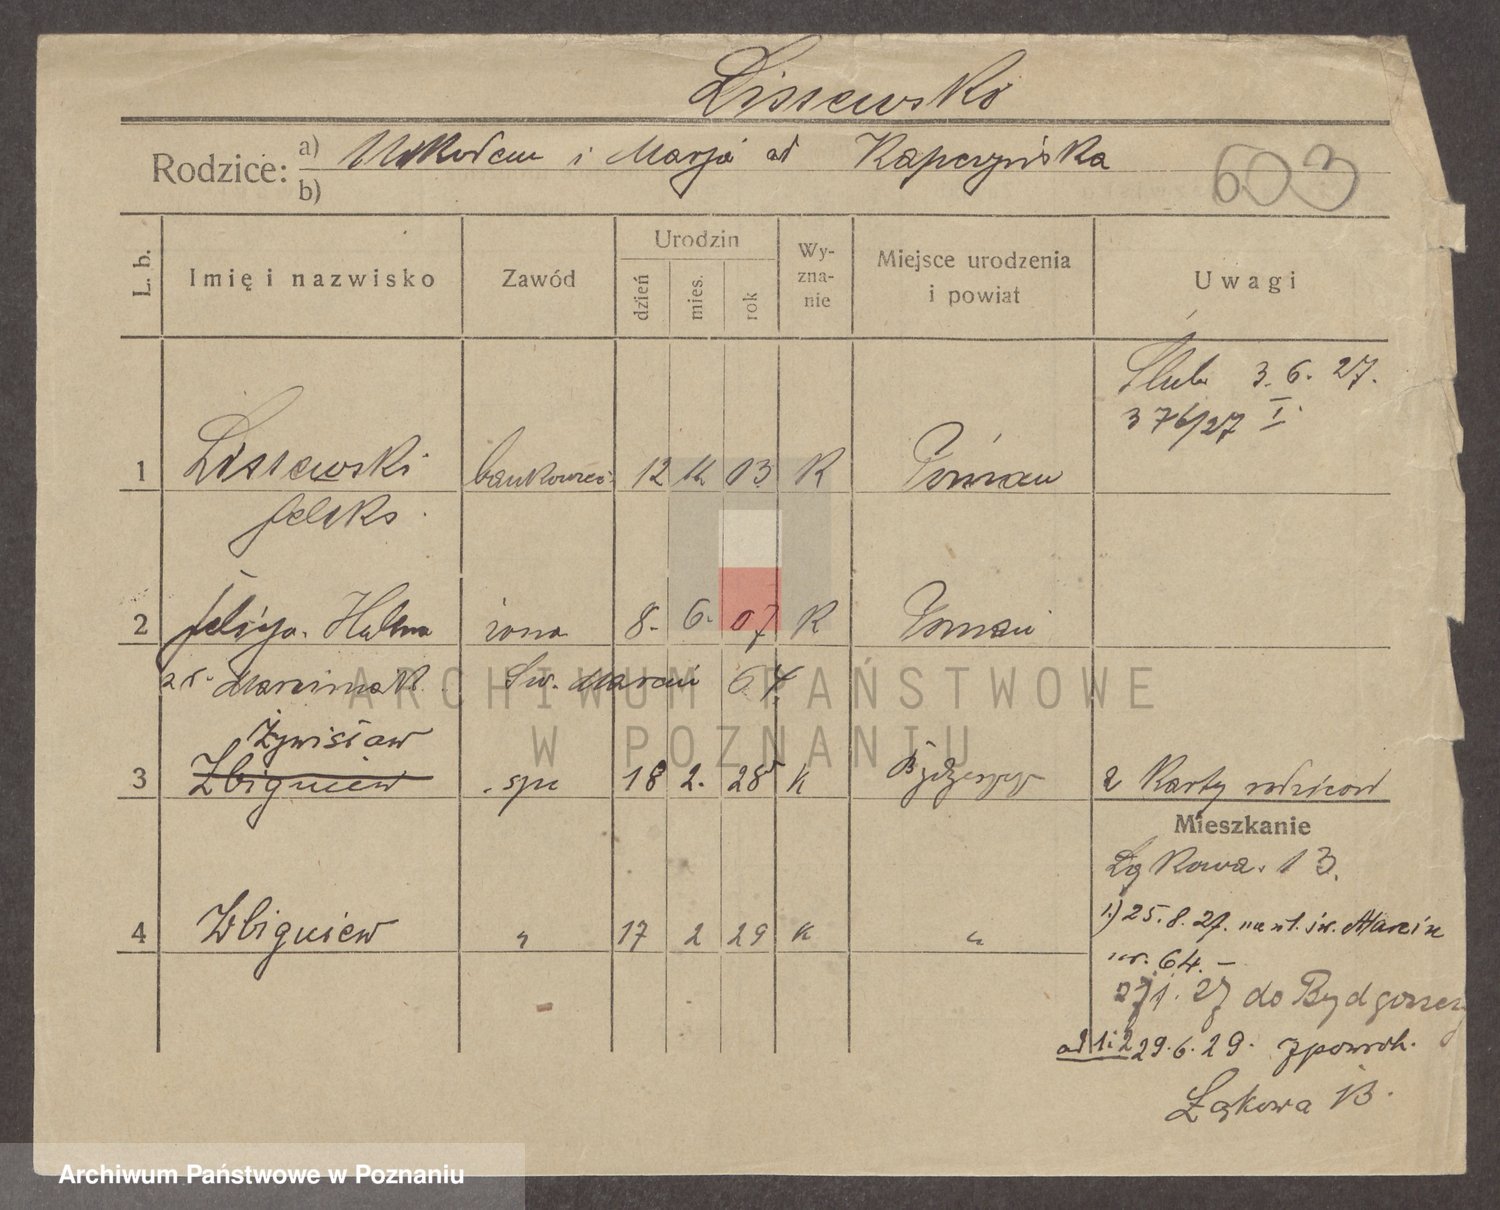 Lisiewski
Rodzice: a) Nikodem i Marja ad Kapczyńska
b)
603
L. b. Imię i nazwisko Zawód Urodzin dzień mies. rok Wyznanie Miejsce urodzenia i powiat Uwagi
Ślub 3. 6. 27.
376/27 I.
1 Lisiewski bankowiec 12 11 03 K Poznań
Feliks
2 Felicja Helena żona 8. 6. 07 K Poznań
Marciniak Św. Marcin 64.
Żywisław
3 Zbigniew syn 18 2. 28 K Bydgoszcz 2 Karty rodziców
Mieszkanie
Łąkowa 13.
4 Zbigniew " 17 2 29 K "
1) 25. 8. 27. na ul. św. Marcin
nr. 64. –
27 do Bydgoszczy
ad 1 i 2 29. 6. 29. z powrot.
Łąkowa 13.
ARCHIWUM PAŃSTWOWE
W POZNANIU
Archiwum Państwowe w Poznaniu